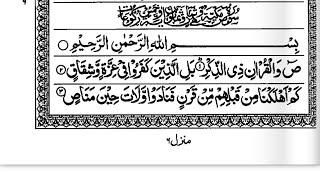 بِسْمِ اللهِ الرَّحْمٰنِ الرَّحِيْمِ ○
صٓ وَالْقُرْاٰنِ ذِی الذِّكْرِ ۱ بَلِ الَّذِیْنَ كَفَرُوْا فِیْ عِزَّةٍ وَّشِقَاقٍ ۲
كَمْ اَهْلَكْنَا مِنْ قَبْلِهِمْ مِّنْ قَرْنٍ فَنَادَوْا وَّلَاتَ حِیْنَ مَنَاصٍ ۳
منزل ۶